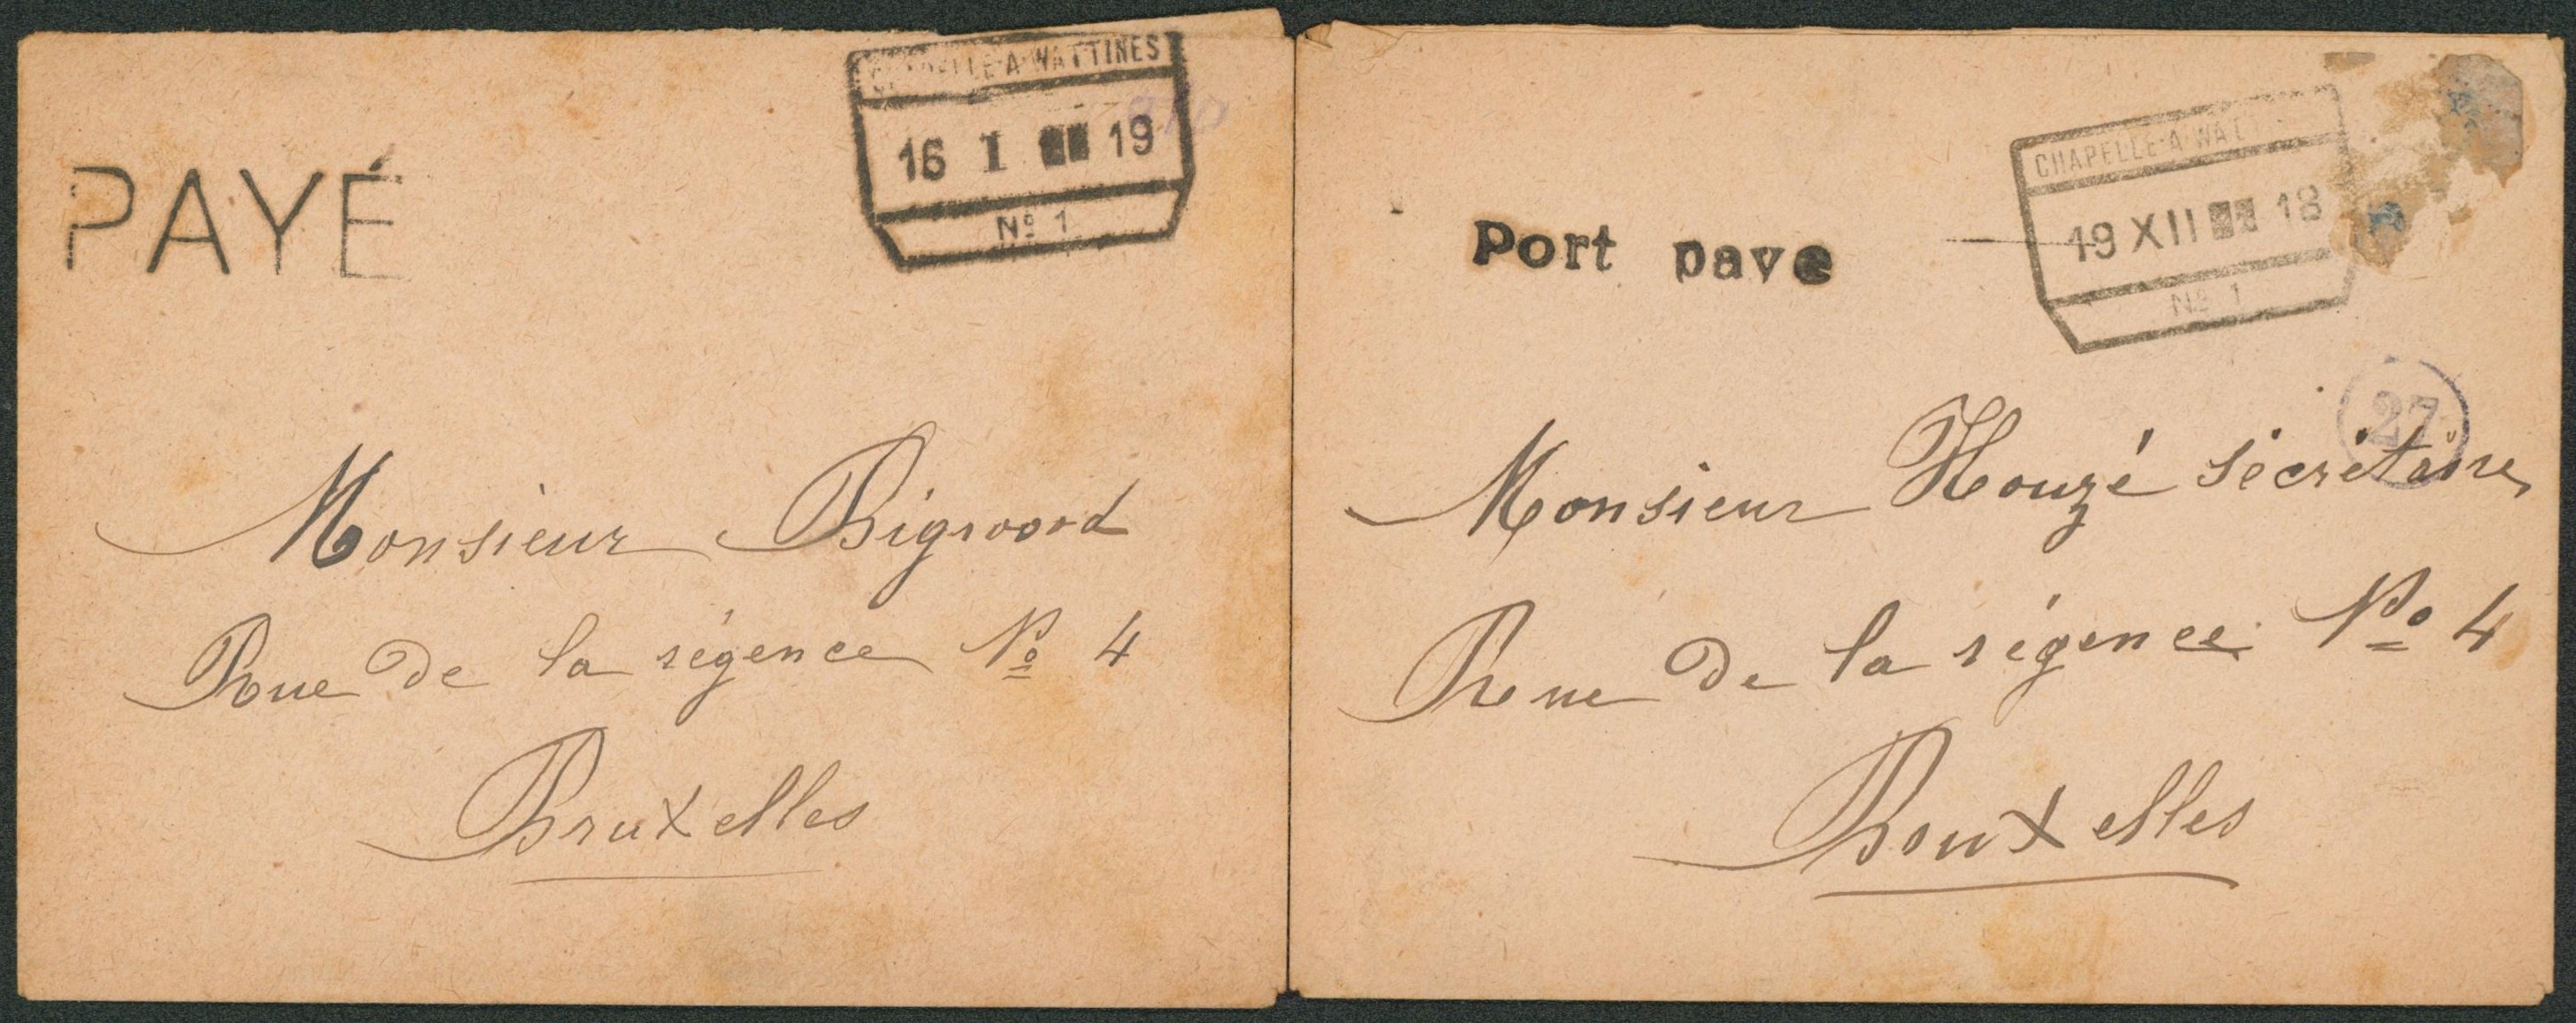 PAYÉ
CHAPELLE-A-WATTINES
16 I 19
Nº 1
Monsieur Bigwood
Rue de la régence Nº 4
Bruxelles
Port paye
CHAPELLE-A-WATT
19 XII 18
Nº 1
27
Monsieur Houzé sécrétaire
Rue de la régence Nº 4
Bruxelles